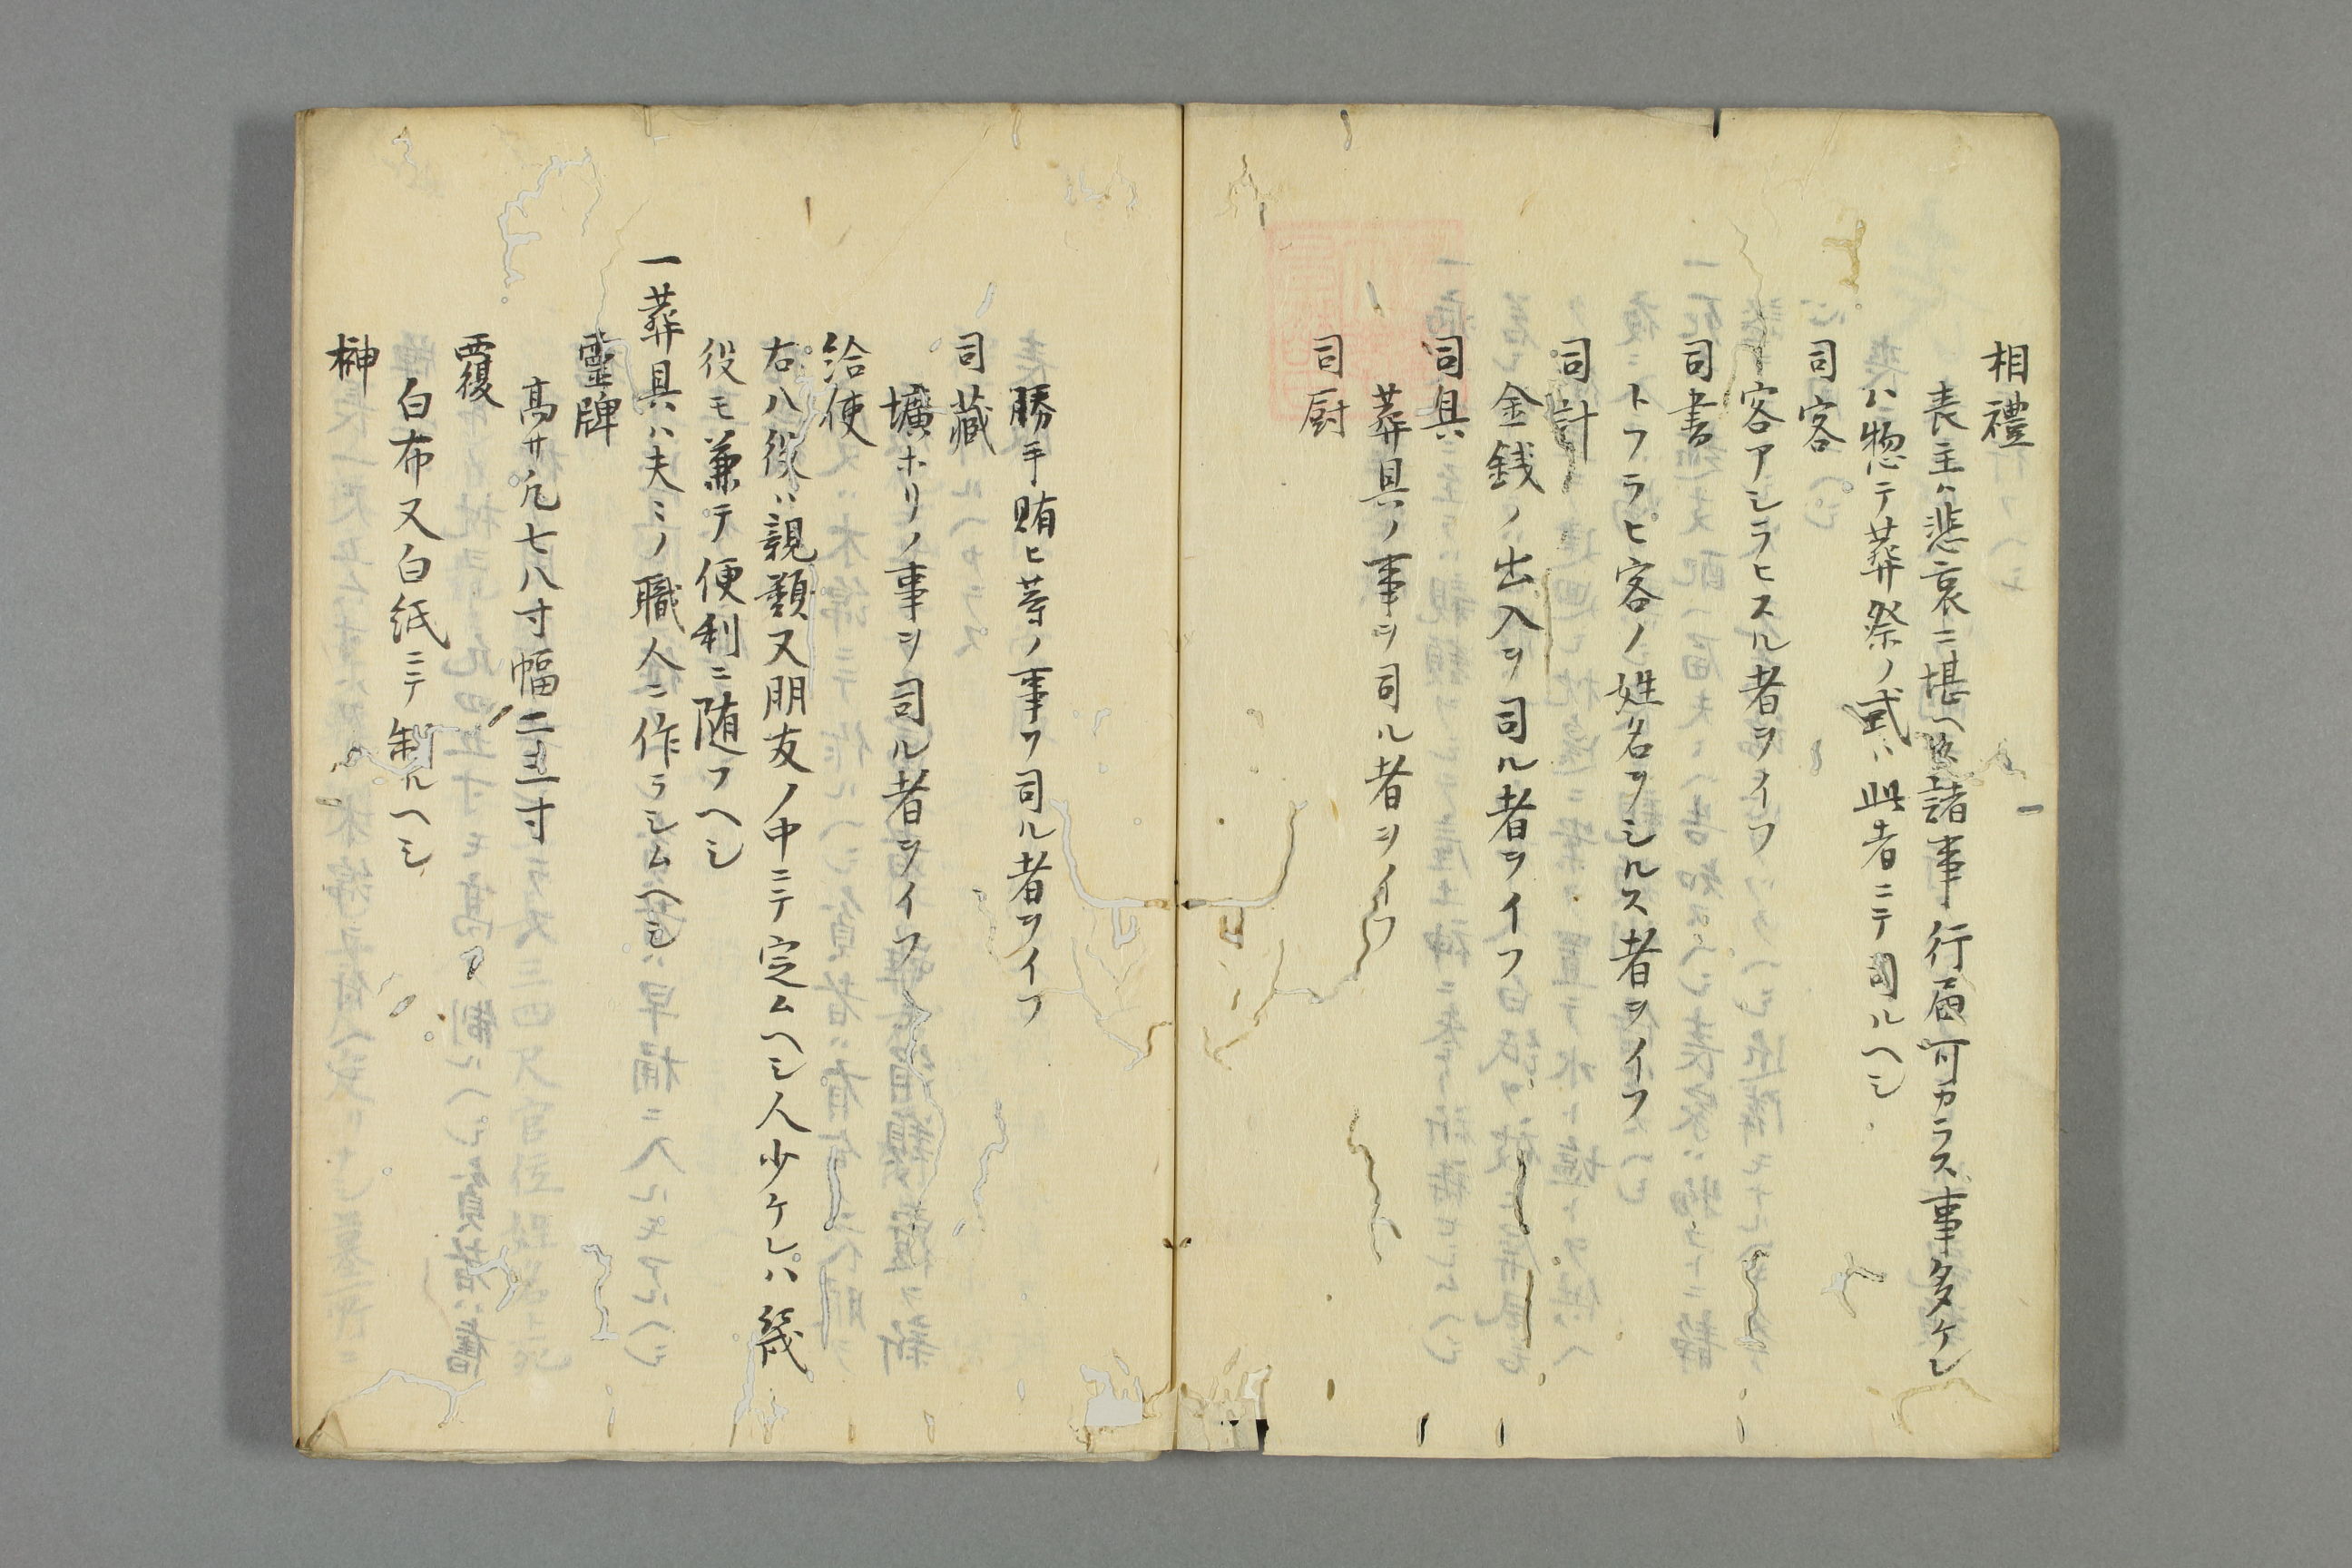 相禮
喪主ハ悲哀ニ堪ヘ諸事行届可カラス事多ケレ
ハ惣テ葬祭ノ式ハ此者ニテ司ルヘシ
司客
客アシラヒスル者ヲイフ
司書
トフラヒ客ノ姓名ヲシルス者ヲイフ
司計
金銭ノ出入ヲ司ル者ヲイフ
司具
葬具ノ事ヲ司ル者ヲイフ
司厨
勝手賄ヒ等ノ事ヲ司ル者ヲイフ
司藏
壙ホリノ事ヲ司ル者ヲイフ
給使
右八役ハ親類又朋友ノ中ニテ定ムヘシ人少ケレハ幾
役モ兼テ便利ニ随フヘシ
一葬具ハ夫ミノ職人ニ作ラシムヘシ
靈牌
高サ凢七八寸幅二三寸
覆
白布又白紙ニテ制ルヘシ
榊